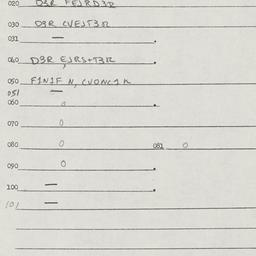 020 D3R FEJRD3R
030 D3R CVEJT3R
031 —
040 D3R EJRS+T3R
050 F1N1F N, CVONC1K
051 —
060 0
070 0
080 0 081 0
090 0
100 —
101 —